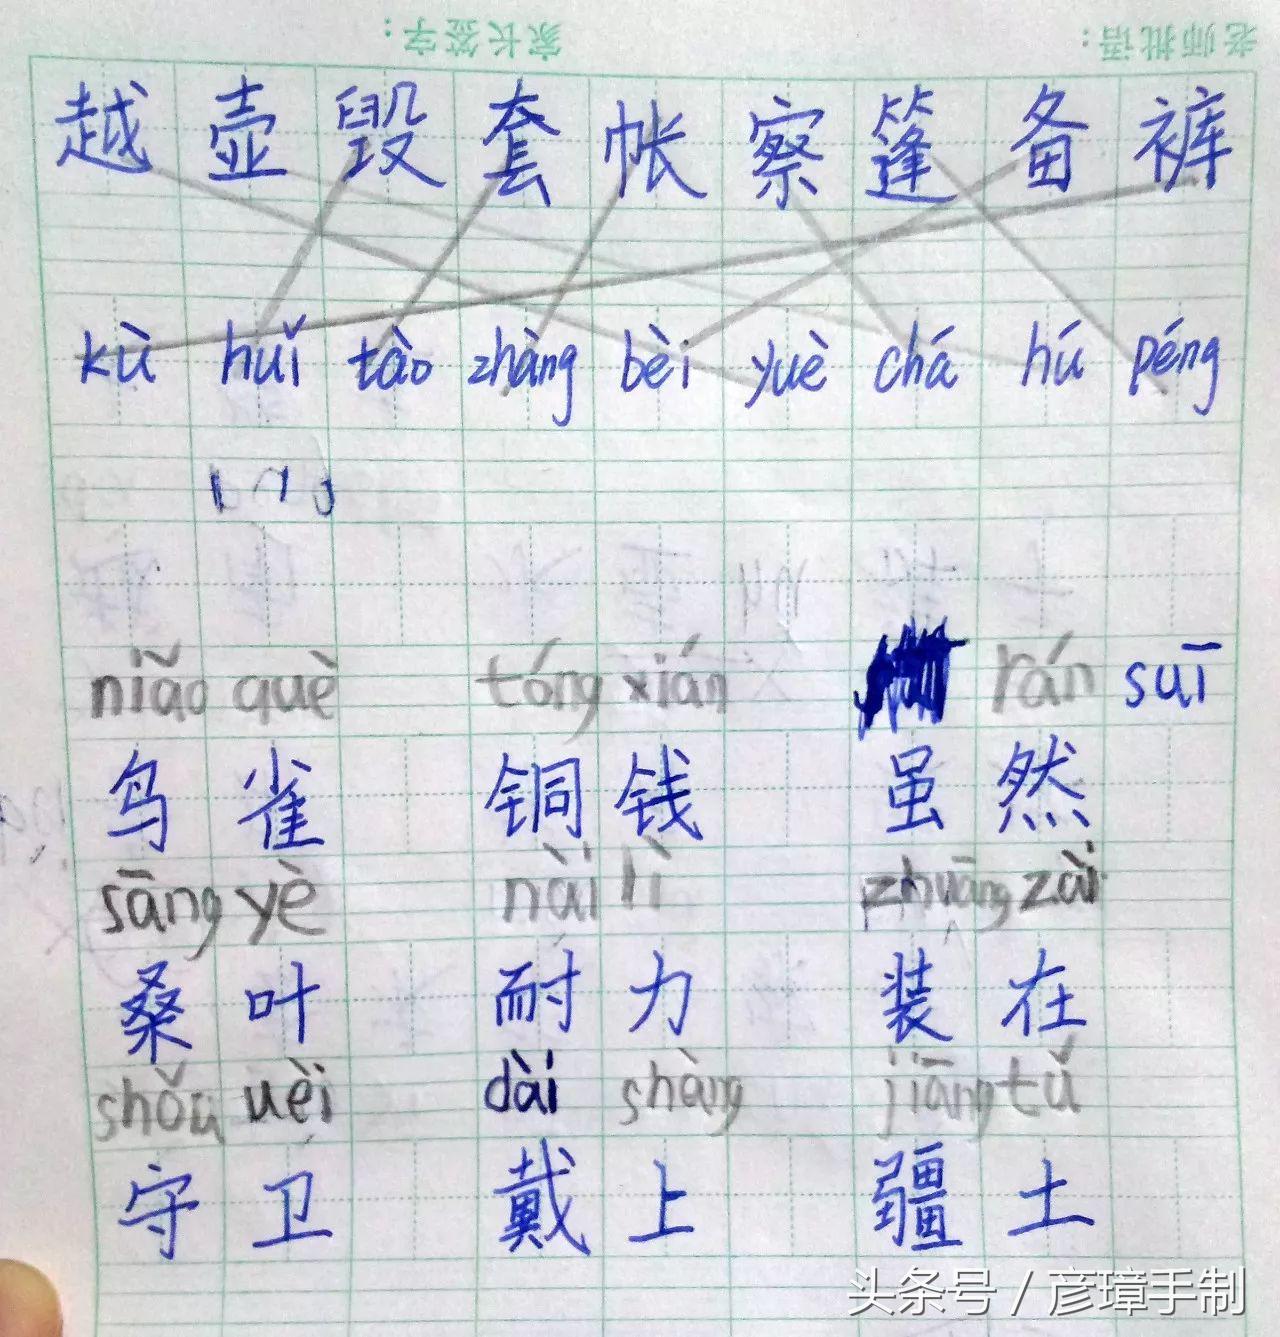 家长签字： 老师批语：
越 壶 毁 套 帐 察 篷 备 裤
kù huǐ tào zhàng bèi yuè chá hú péng
niǎo què tóng xián rán suī
鸟 雀 铜 钱 虽 然
sāng yè nài lì zhuāng zài
桑 叶 耐 力 装 在
shǒu uèi dài shàng jiāng tǔ
守 卫 戴 上 疆 土
头条号 / 彦璋手制